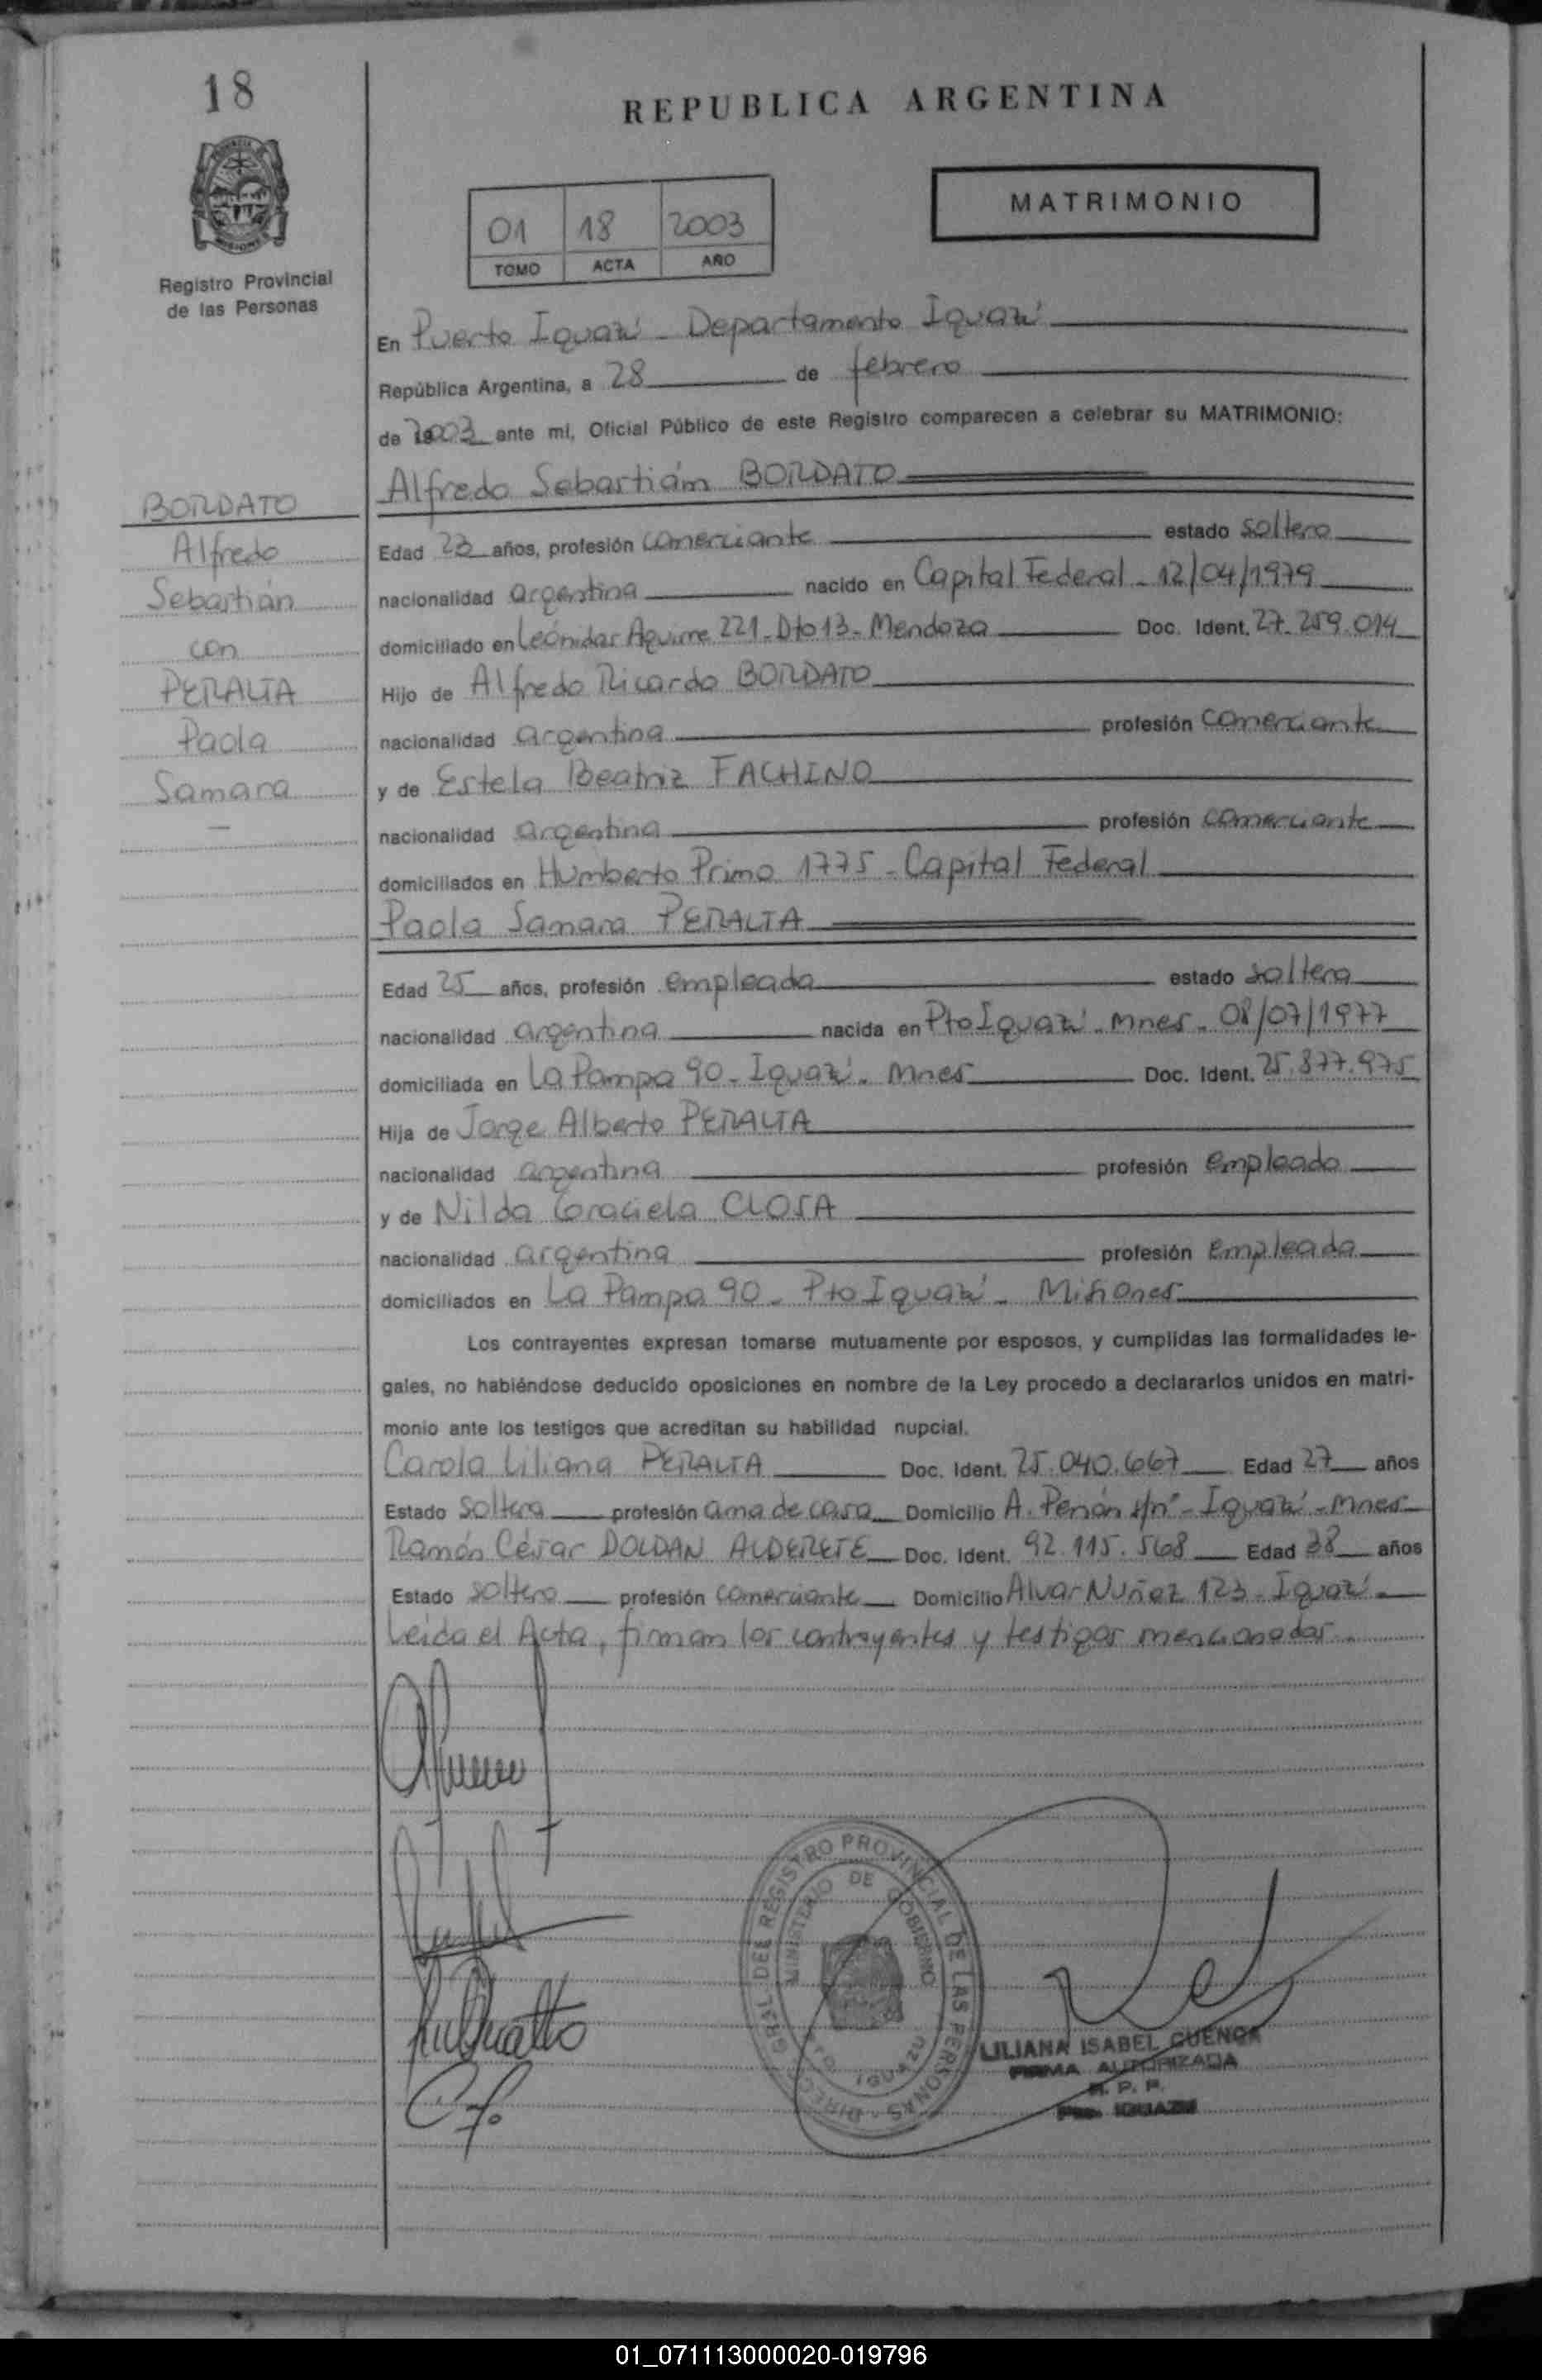 18
REPUBLICA ARGENTINA
MATRIMONIO
01 18 2003
TOMO ACTA AÑO
Registro Provincial
de las Personas
En Puerto Iguazú - Departamento Iguazú
República Argentina, a 28 de febrero
de 2003 ante mi, Oficial Público de este Registro comparecen a celebrar su MATRIMONIO:
Alfredo Sebastián BORDATO
BORDATO
Alfredo
Sebastián
con
PERALTA
Paola
Samara
Edad 23 años, profesión comerciante estado soltero
nacionalidad argentina nacido en Capital Federal - 12/04/1979
domiciliado en Leónidas Aguirre 221 - Dto 13 - Mendoza Doc. Ident. 27.259.014
Hijo de Alfredo Ricardo BORDATO
nacionalidad argentina profesión comerciante
y de Estela Beatriz FACHINO
nacionalidad argentina profesión comerciante
domiciliados en Humberto Primo 1775 - Capital Federal
Paola Samara PERALTA
Edad 25 años, profesión empleada estado soltera
nacionalidad argentina nacida en Pto Iguazú - Mnes - 08/07/1977
domiciliada en La Pampa 90 - Iguazú - Mnes Doc. Ident. 25.877.975
Hija de Jorge Alberto PERALTA
nacionalidad argentina profesión empleado
y de Nilda Graciela CLOSA
nacionalidad argentina profesión empleada
domiciliados en La Pampa 90 - Pto Iguazú - Misiones
Los contrayentes expresan tomarse mutuamente por esposos, y cumplidas las formalidades le-
gales, no habiéndose deducido oposiciones en nombre de la Ley procedo a declararlos unidos en matri-
monio ante los testigos que acreditan su habilidad nupcial.
Carola Liliana PERALTA Doc. Ident. 25.040.667 Edad 27 años
Estado soltera profesión ama de casa Domicilio A. Perón s/nº - Iguazú - Mnes
Ramón César DOLDAN ALDERETE Doc. Ident. 92.115.568 Edad 38 años
Estado soltero profesión comerciante Domicilio Alvar Nuñez 123 - Iguazú
Leída el Acta, firman los contrayentes y testigos mencionados
DIRECC. GRAL. DEL REGISTRO PROVINCIAL DE LAS PERSONAS
MINISTERIO DE GOBIERNO
PTO. IGUAZU
LILIANA ISABEL CUENCA
FIRMA AUTORIZADA
R. P. P.
Pto. IGUAZU
01_071113000020-019796